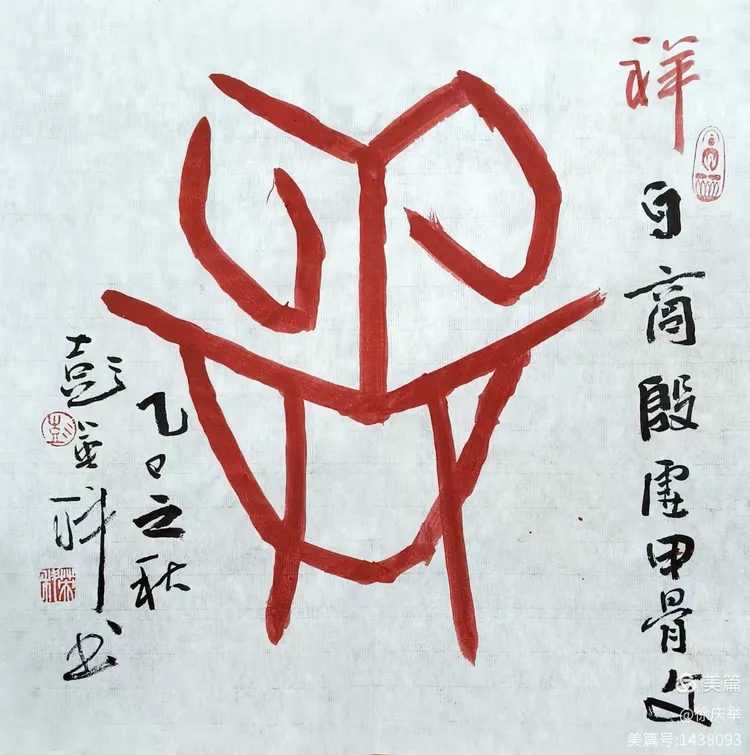 祥
自商殷虚甲骨文
乙巳之秋
彭荣科书
彭
美篇
@徐庆举
美篇号:1438093